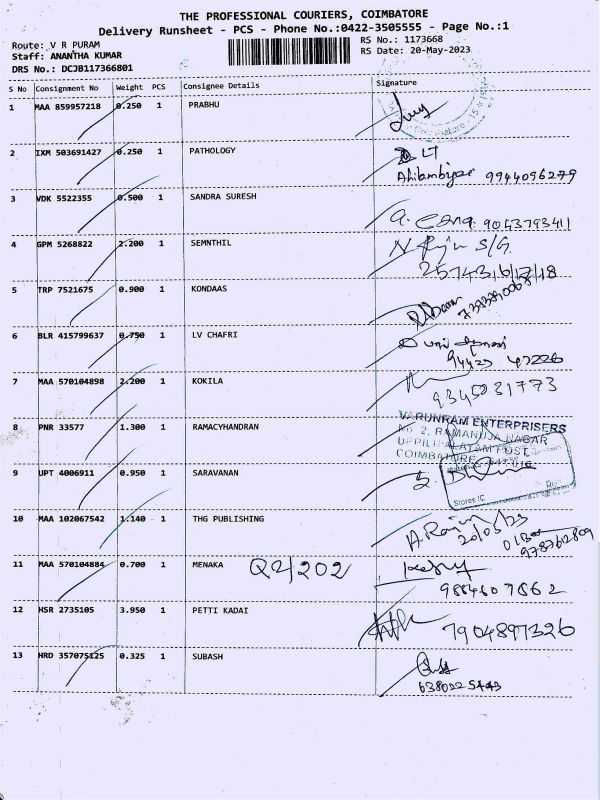 THE PROFESSIONAL COURIERS, COIMBATORE
Delivery Runsheet - PCS - Phone No.:0422-3505555 - Page No.:1
Route: V R PURAM
RS No.: 1173668
Staff: ANANTHA KUMAR
RS Date: 20-May-2023
DRS No.: DCJB117366801
S No Consignment No Weight PCS Consignee Details Signature
1 MAA 859957218 0.250 1 PRABHU
2 IXM 503691427 0.250 1 PATHOLOGY
9944096279
3 VDK 5522355 0.500 1 SANDRA SURESH
9043793411
4 GPM 5268822 2.200 1 SEMNTHIL
2574316/17/18
5 TRP 7521675 0.900 1 KONDAAS
6 BLR 415799637 0.750 1 LV CHAFRI
94423 47226
7 MAA 570104898 2.200 1 KOKILA
9345031773
8 PNR 33577 1.300 1 RAMACYHANDRAN
VARUNRAM ENTERPRISERS
No. 2, RAMANUJA NAGAR
UPPILIPALAYAM POST
COIMBATORE
9 UPT 4006911 0.950 1 SARAVANAN
Stores IC
10 MAA 102067542 1.140 1 THG PUBLISHING
20/05/23
11 MAA 570104884 0.700 1 MENAKA Q2/202
9884607862
12 HSR 2735105 3.950 1 PETTI KADAI
7904897326
13 HRD 357075125 0.325 1 SUBASH
6380225443